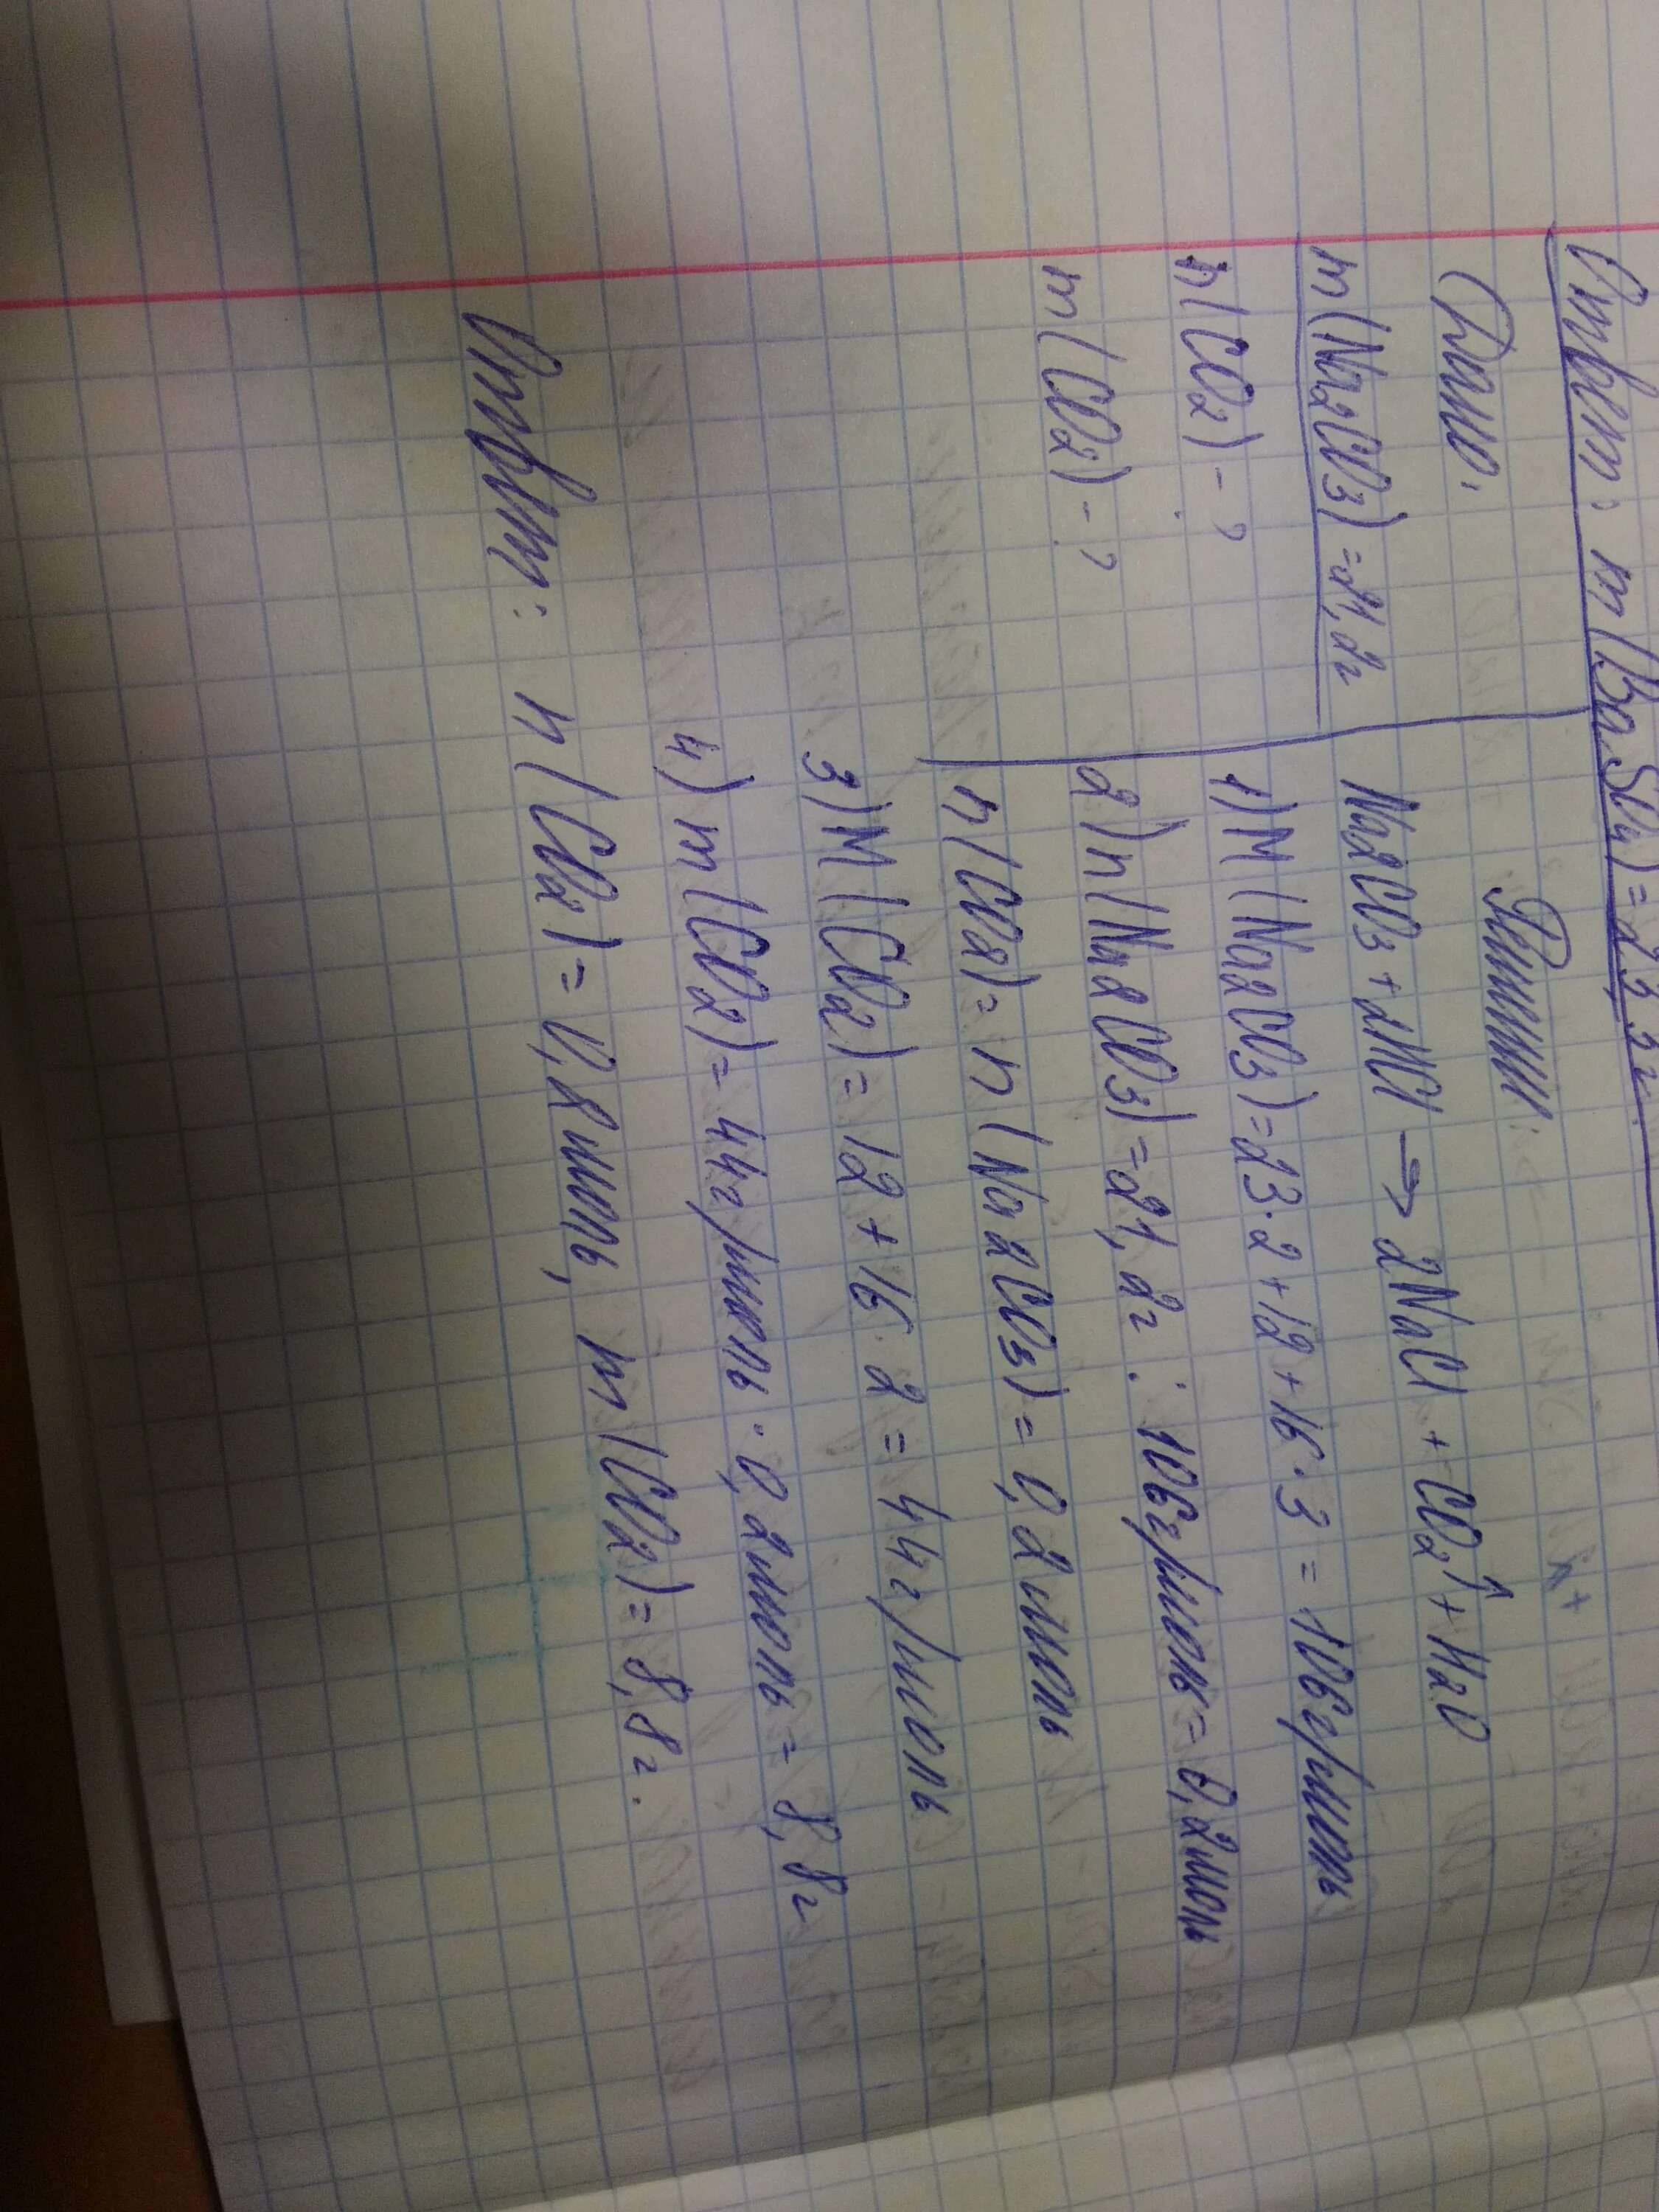 Ответ: m(BaSO4)=23,3г.
Дано:
Решение:
m(Na2CO3)=21,2г
Na2CO3+2HCl→2NaCl+CO2↑+H2O
n(CO2)-?
1)M(Na2CO3)=23·2+12+16·3=106г/моль
m(CO2)-?
2)n(Na2CO3)=21,2г:106г/моль=0,2моль
n(CO2)=n(Na2CO3)=0,2моль
3)M(CO2)=12+16·2=44г/моль
4)m(CO2)=44г/моль·0,2моль=8,8г
Ответ: n(CO2)=0,2моль, m(CO2)=8,8г.